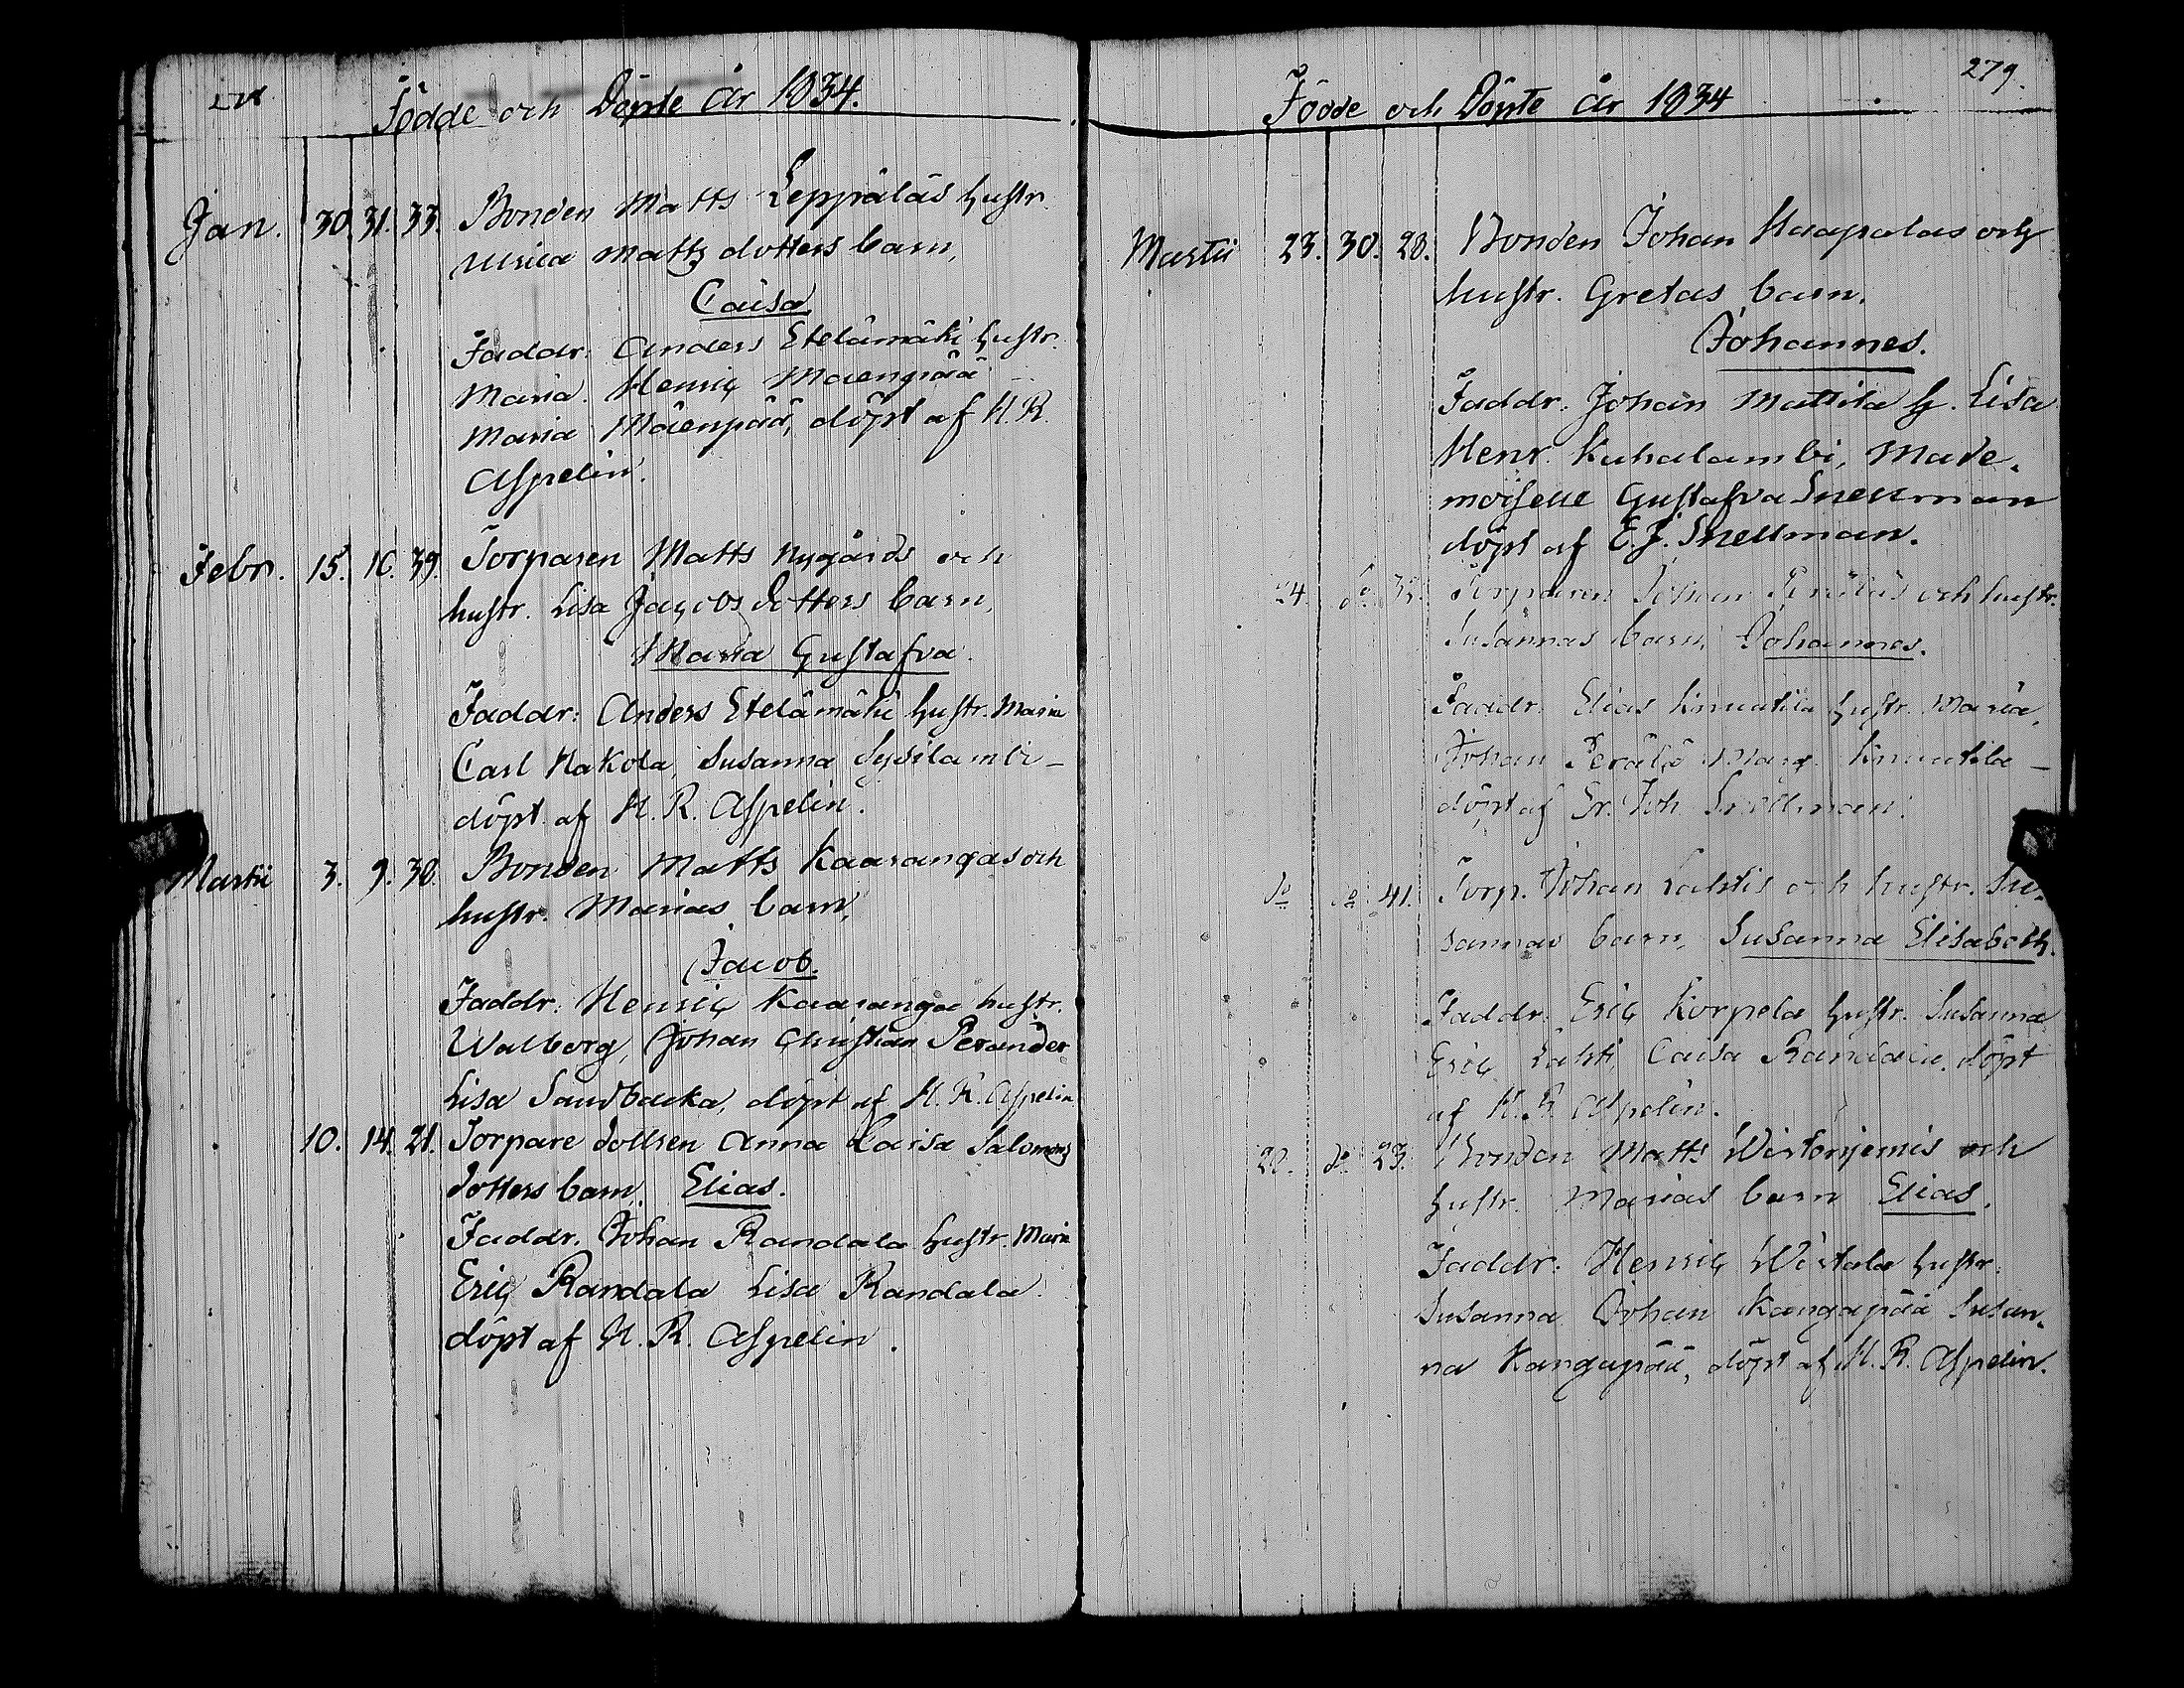 278
Födde och Döpte År 1834.
Jan. 30. 31. 33. Bonden Matts Leppäläs hustr.
Ulrica Matts dotters barn,
Caisa
Faddr. Anders Etelämäki hustr.
Maria. Henric Mäenpää
Maria Mäenpää, döpt af H. R.
Aspelin.
Febr. 15. 16. 39. Torparen Matts Nygårds och
hustr. Lisa Jacobs dotters barn,
Maria Gustafva.
Faddr: Anders Etelämäki hustr. Maria
Carl Hakola, Susanna Sysilambi -
döpt af H. R. Aspelin.
Martii 3. 9. 38. Bonden Matts Kaarangas och
hustr. Marias barn,
Jacob.
Faddr: Henric Kaaranga hustr.
Walborg, Johan Christian Perander
Lisa Sandbacka, döpt af H. R. Aspelin
10. 14. 21. Torpare dottren Anna Caisa Salomons
dotters barn, Elias.
Faddr. Johan Randala hustr. Maria
Eric Randala Lisa Randala.
döpt af H. R. Aspelin.
279.
Födde och Döpte År 1834
Martii 23. 30. 28. Bonden Johan Haapalas och
hustr. Gretas barn,
Johannes.
Faddr: Johan Mattila h. Lisa
Henr. Kuhalambi, Made-
moiselle Gustafva Snellman
döpt af E. J. Snellman.
24. do Torparen Johan Peräläs och hustr.
Susannas barn, Johannes.
Faddr. Elias Knuutila hustr. Maria,
Johan Perälä Marg. Knuutila -
döpt af Er. Joh. Snellman.
do do 41. Torp. Johan Lahtis och hustr. Su-
sannas barn, Susanna Elisabeth.
Faddr. Eric Korpela hustr. Susanna
Eric Lahti, Caisa Randala, döpt
af H. R. Aspelin.
28. do 23. Bonden Matts Wirtaniemis och
hustr. Marias barn Elias.
Faddr: Henric Wirtala hustr.
Susanna Johan Kangapää Susan-
na Kangapää, döpt af H. R. Aspelin.